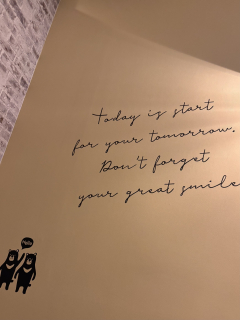 Today is start
for your tomorrow.
Don't forget
your great smile
Hello